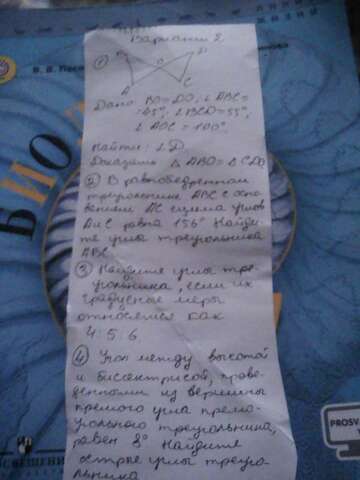 Вариант 2
①
B
D
O
A
C
Дано: BO=DO, ∠ABC=
45°, ∠BCD=55°,
∠AOC=100°.
Найти: ∠D.
Доказать △ABO=△CDO
② В равнобедренном
треугольнике ABC с осно
ванием AC сумма углов
A и C равна 156° Найди
те углы треугольника
ABC.
③ Найдите углы тре
угольника, если их
градусные меры
относятся как
4:5:6
④ Угол между высотой
и биссектрисой, прове
денными из вершины
прямого угла прямо
угольного треугольника,
равен 8° Найдите
острые углы треуго
льника
В. В. Пасе
БИО
ПРОСВЕЩЕНИЕ
PROSV